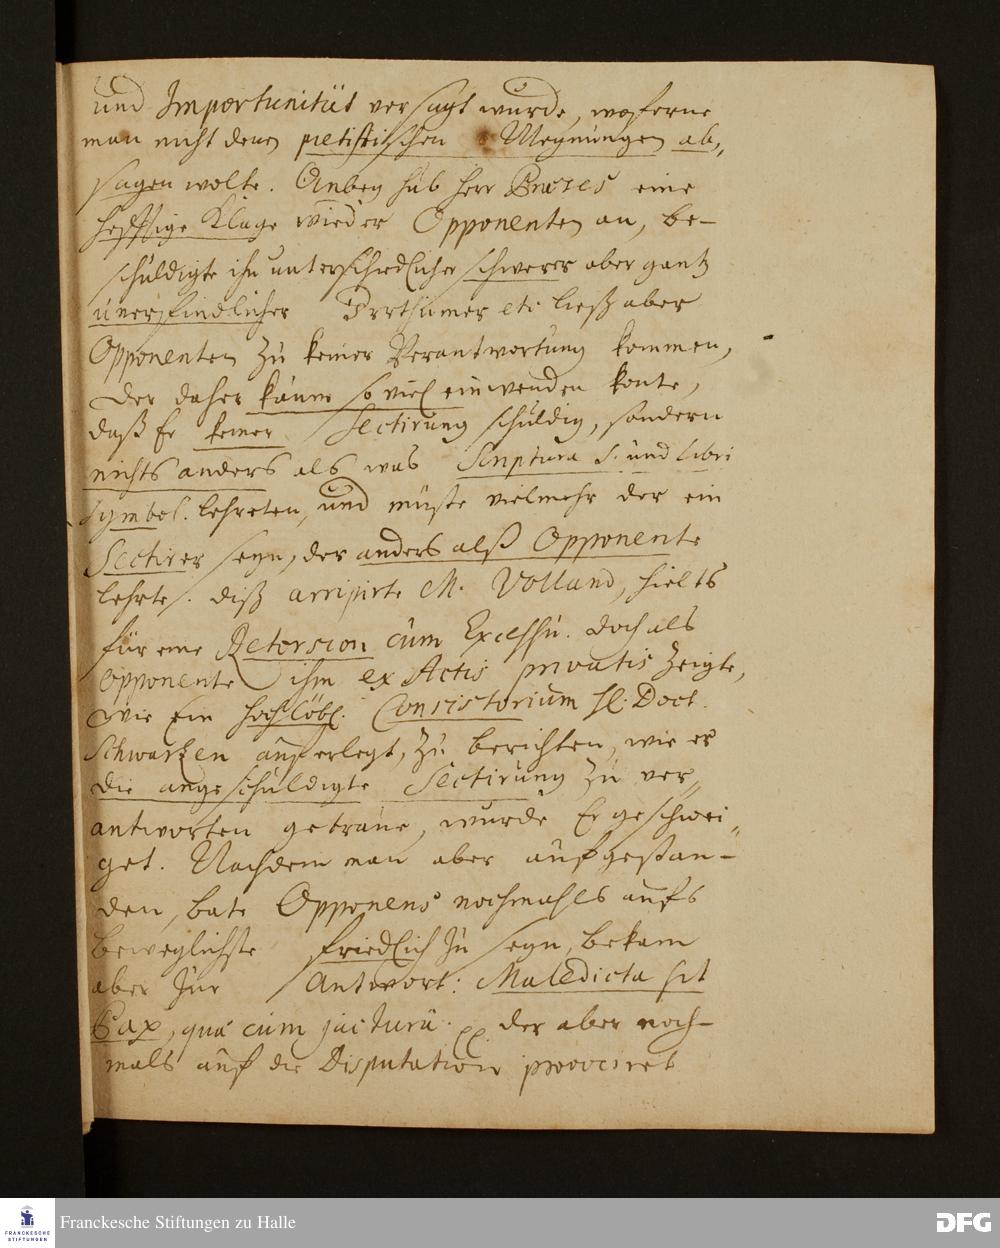 und Importunität versagt wurde, woferne
man nicht denen pietistischen Meynungen ab„
sagen wolte. Anbey hub Herr Præses eine
hefftige Klage wieder Opponenten an, be-
schuldigte ihn unterschiedlicher schwerer aber gantz
unerfindlicher Irrthümer etc ließ aber
Opponenten zu keiner Verantwortung kommen,
der daher kaum so viel einwenden konte,
daß Er keiner Sectirung schuldig, sondern
nichts anders als was Scriptura S. und Libri
Symbol. lehreten, und müste vielmehr der ein
Sectirer seyn, der anders alß Opponente
lehrte. diß arripirte M. Volland, hielts
für eine Retorsion cum Excessu. doch als
Opponente ihm ex Actis privatis zeigte,
wie Ein hochlöbl. Consistorium H. Doct.
Schwartzen aufferlegt, zu berichten, wie er
die angeschuldigte Sectirung zu ver„
antworten getraue, wurde Er geschwei„
get. Nachdem man aber aufgestan-
den, bate Opponens nochmahls aufs
beweglichste friedlich zu seyn, bekam
aber zur Antwort: Maledicta sit
Pax, quæ cum jactura pp. der aber noch-
mals auf die Disputation provociret
Franckesche Stiftungen zu Halle
FRANCKESCHE
STIFTUNGEN
DFG